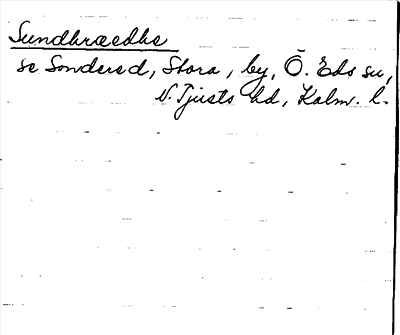 Sundhrædhs
se Sondered, Stora, by, Ö. Eds sn,
N. Tjusts hd, Kalm. l.